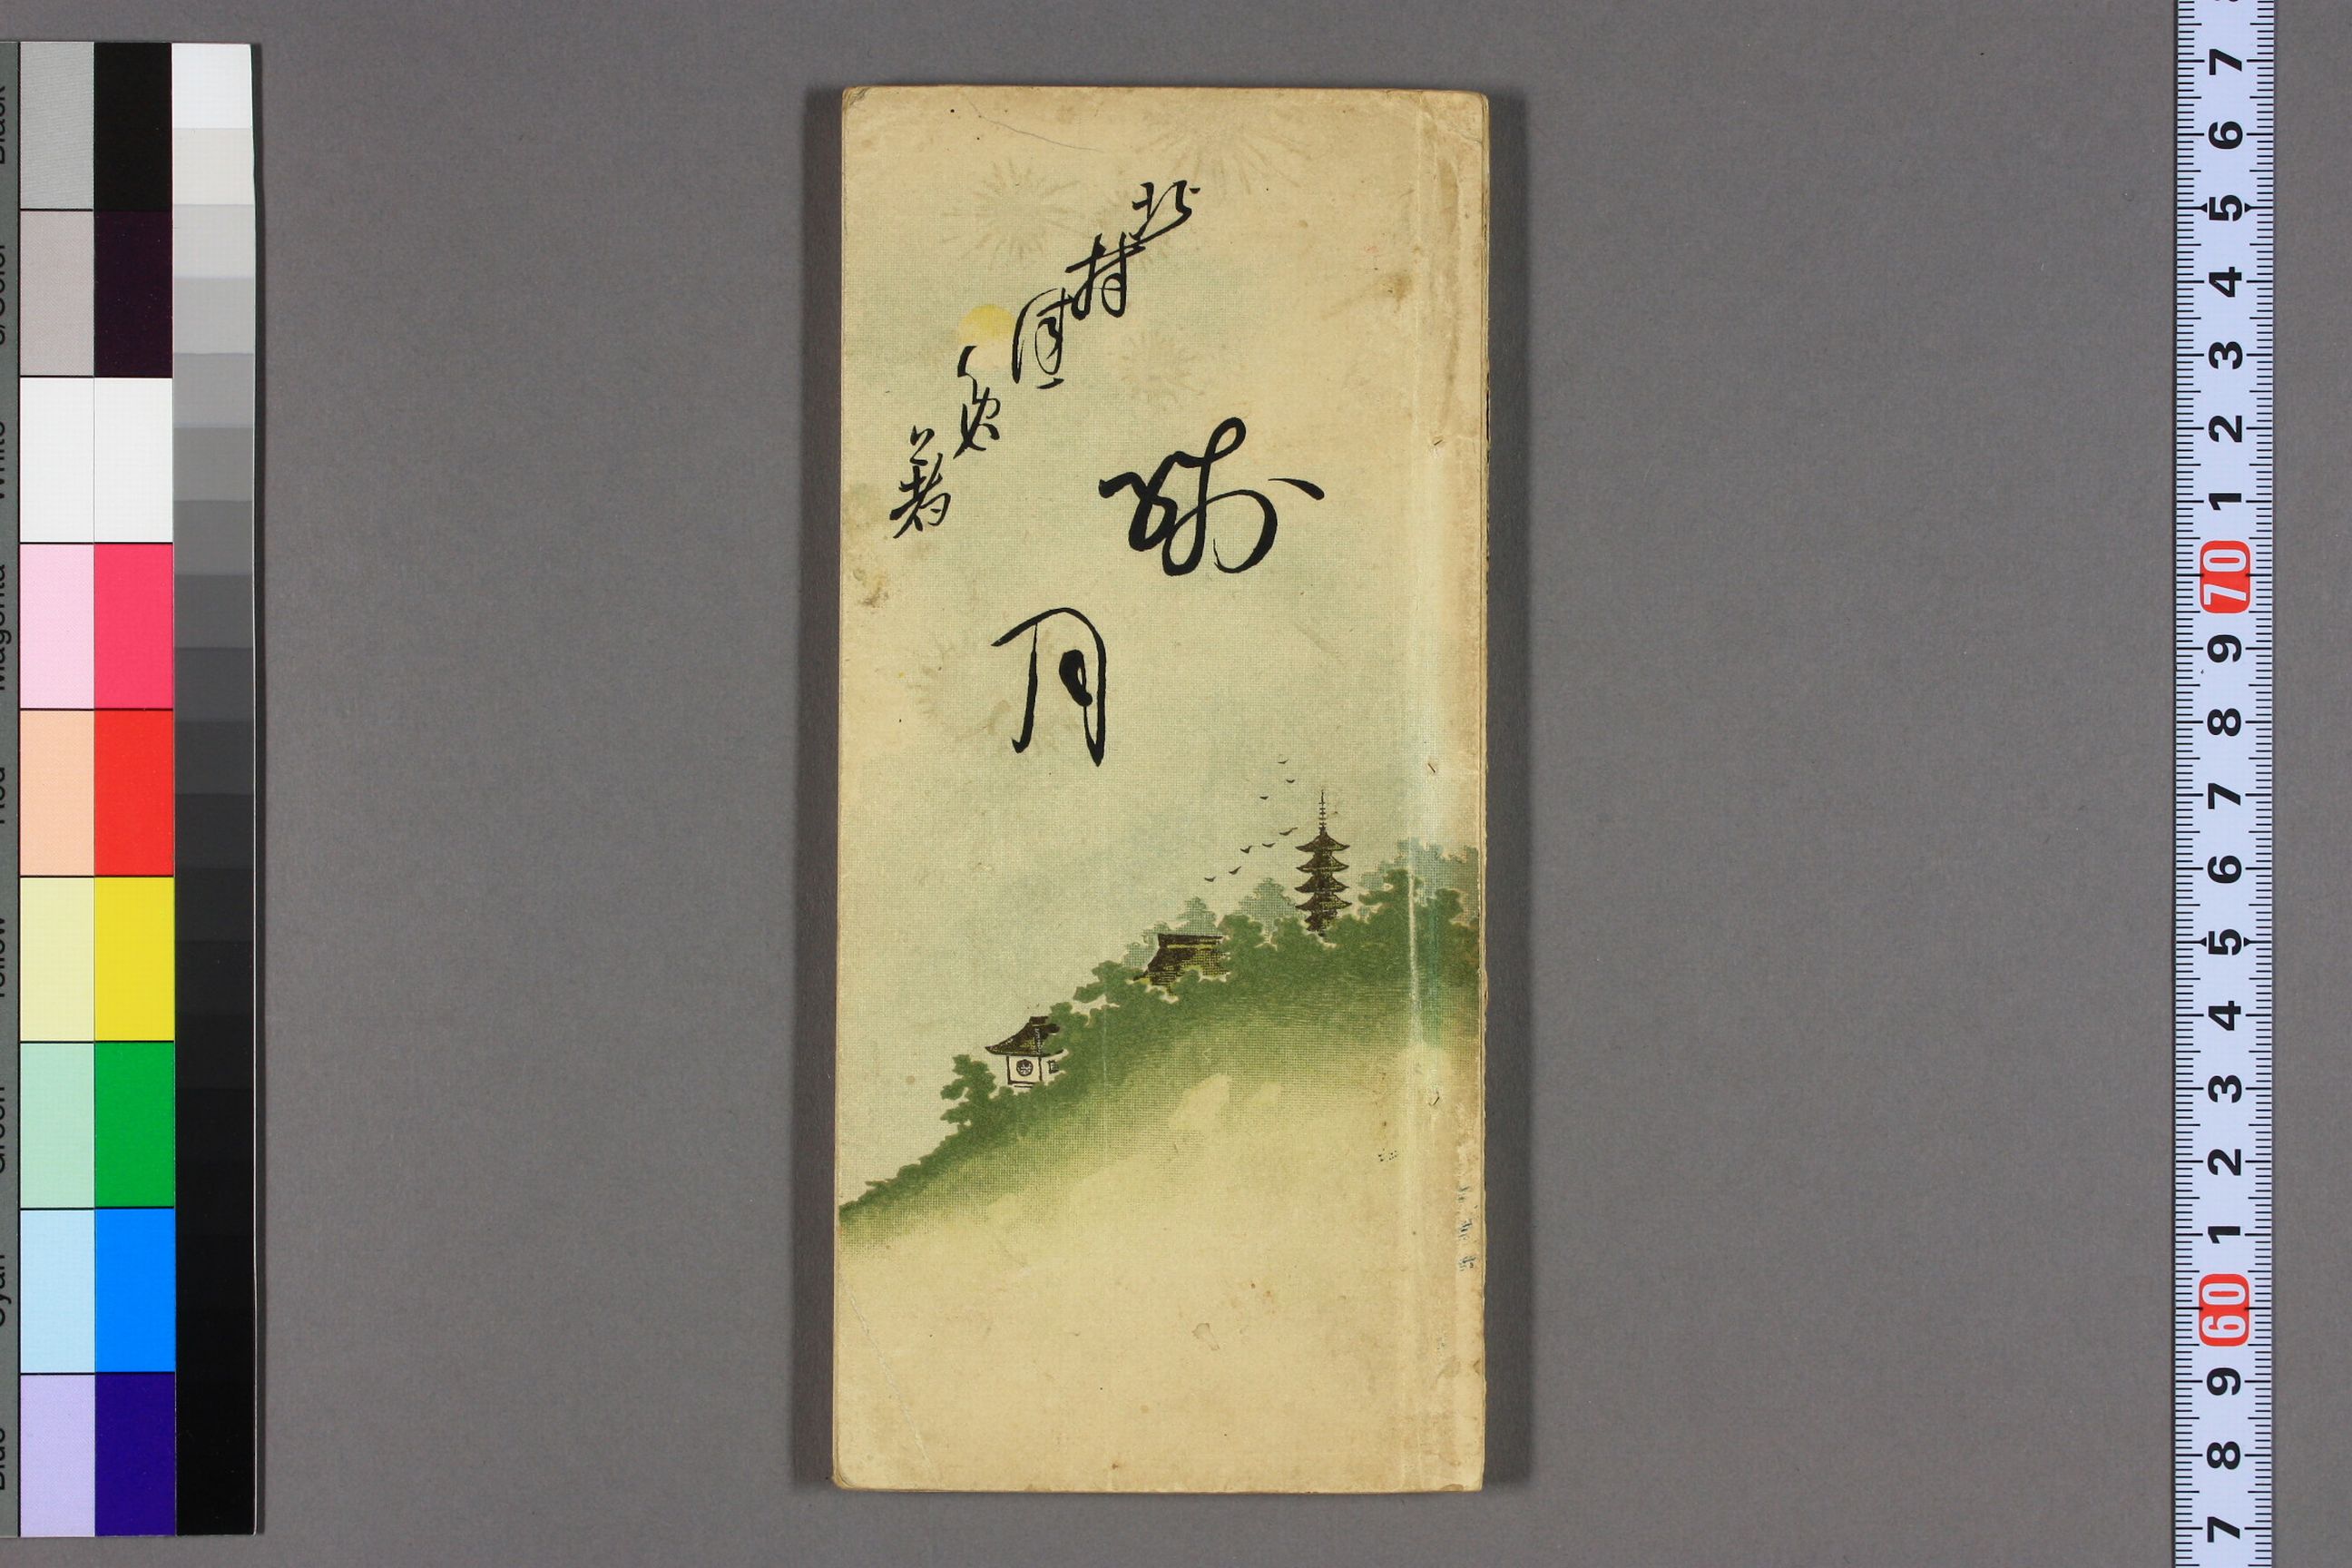 北村
著
残月
Black
3/Color
White
Magenta
Red
Yellow
Green
Cyan
Blue
7
6
5
4
3
2
1
70
9
8
7
6
5
4
3
2
1
60
9
8
7